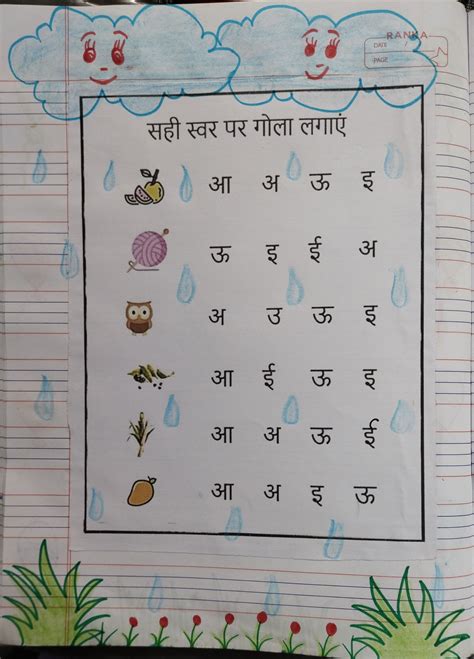 RANKA
DATE
PAGE
सही स्वर पर गोला लगाएं
आ अ ऊ इ
ऊ इ ई अ
अ उ ऊ इ
आ ई ऊ इ
आ अ ऊ ई
आ अ इ ऊ